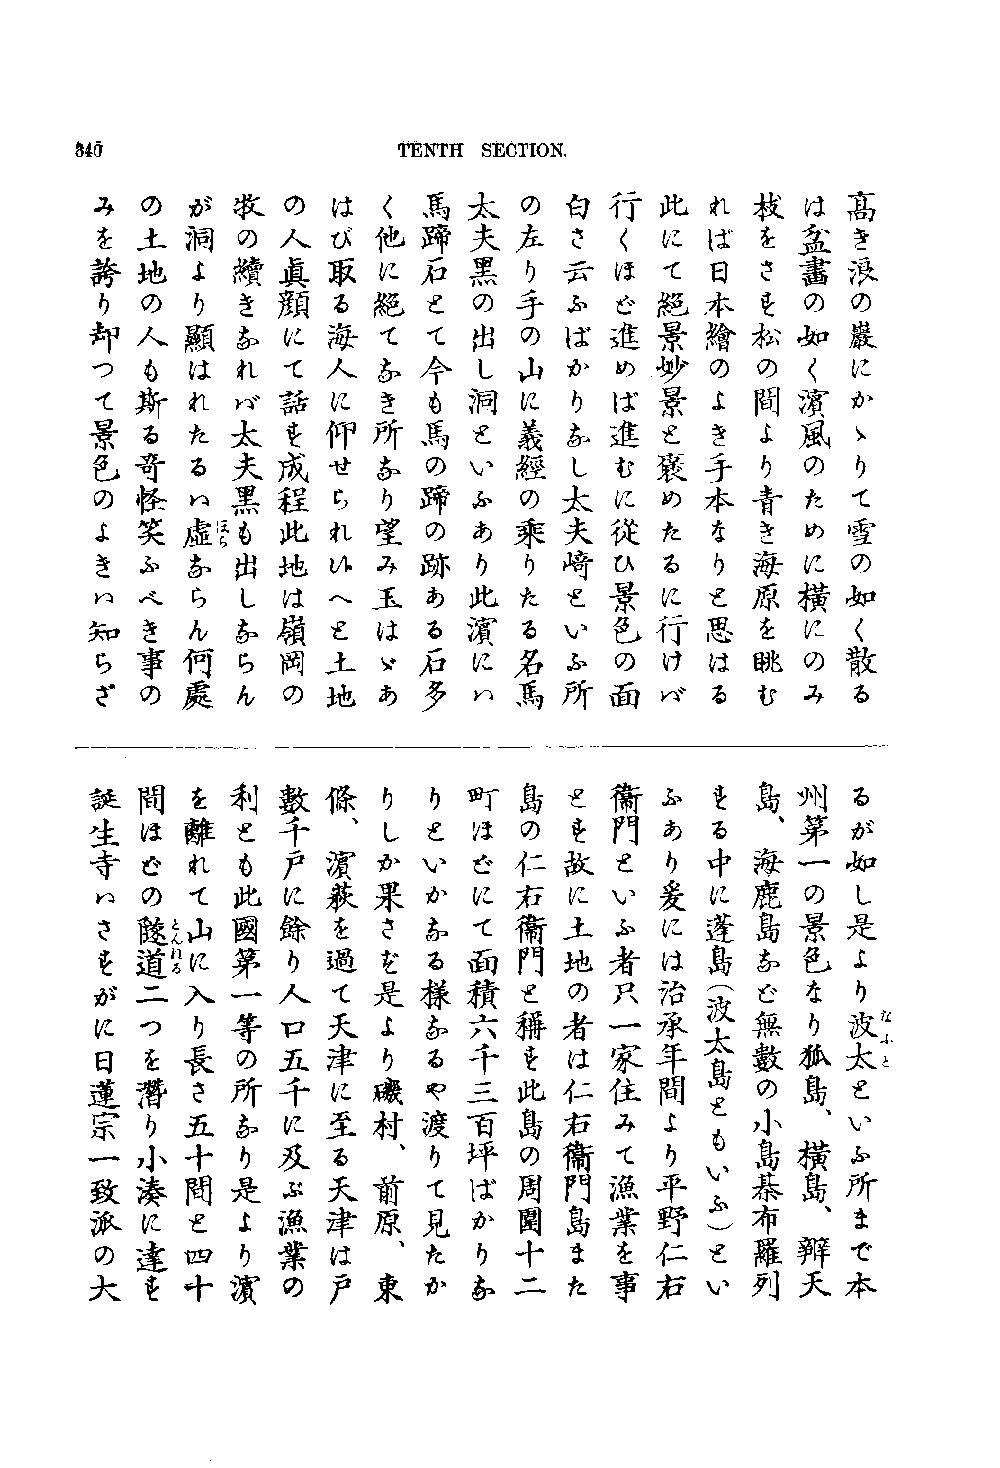 340
TENTH SECTION.
高き浪の巖にかゝりて雪の如く散る
は盆畵の如く濱風のために橫にのみ
枝をさす松の間より青き海原を眺む
れば日本繪のよき手本なりと思はる
此にて絶景妙景と褒めたるに行けバ
行くほど進めば進むに從ひ景色の面
白さ云ふばかりなし太夫﨑といふ所
の左り手の山に義經の乘りたる名馬
太夫黒の出し洞といふあり此濱にハ
馬蹄石とて今も馬の蹄の跡ある石多
く他に絶てなき所なり望み玉はゞあ
はび取る海人に仰せられいへと土地
の人眞顔にて話す成程此地は嶺岡の
牧の續きなれバ太夫黒も出しならん
が洞より顯はれたるハ虛ならん何處
ほら
の土地の人も斯る奇怪笑ふべき事の
みを誇り却つて景色のよきハ知らざ
るが如し是より波太といふ所まで本
なふと
州第一の景色なり狐島、橫島、辧天
島、海鹿島など無數の小島棊布羅列
する中に蓬島(波太島ともいふ)とい
ふあり爰には治承年間より平野仁右
衞門といふ者只一家住みて漁業を事
とす故に土地の者は仁右衞門島また
島の仁右衞門と稱す此島の周圍十二
町ほどにて面積六千三百坪ばかりな
りといかなる樣なるや渡りて見たか
りしか果さず是より磯村、前原、東
條、濱萩を過て天津に至る天津は戸
數千戸に餘り人口五千に及ぶ漁業の
利とも此國第一等の所なり是より濱
を離れて山に入り長さ五十間と四十
間ほどの隧道二つを潛り小湊に達す
とんねる
誕生寺ハさすがに日蓮宗一致派の大